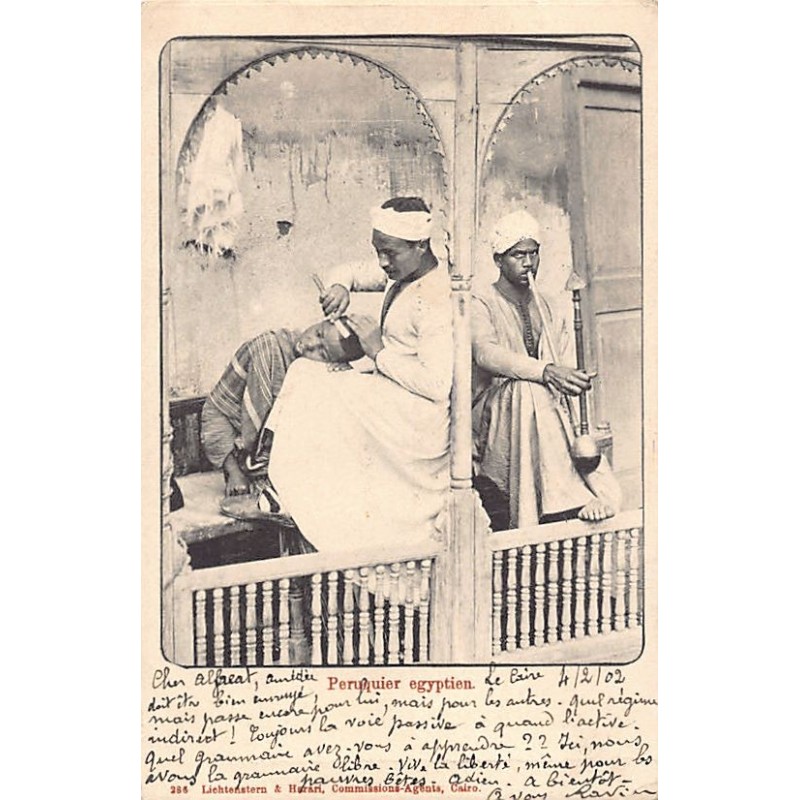 Peruquier egyptien.
Le Caire 4/2/02
Cher Alfred,
doit être bien ennuyé,
mais passe encore pour lui, mais pour les autres. quel régime
indirect ! Toujours la voie passive à quand l'active.
Quel grammaire avez-vous à apprendre ?? Ici, nous
avons la grammaire libre. Vive la liberté, même pour les
pauvres bêtes. Adieu. A bientôt -
A vous
286 Lichtenstern & Harari, Commissions-Agents, Cairo.